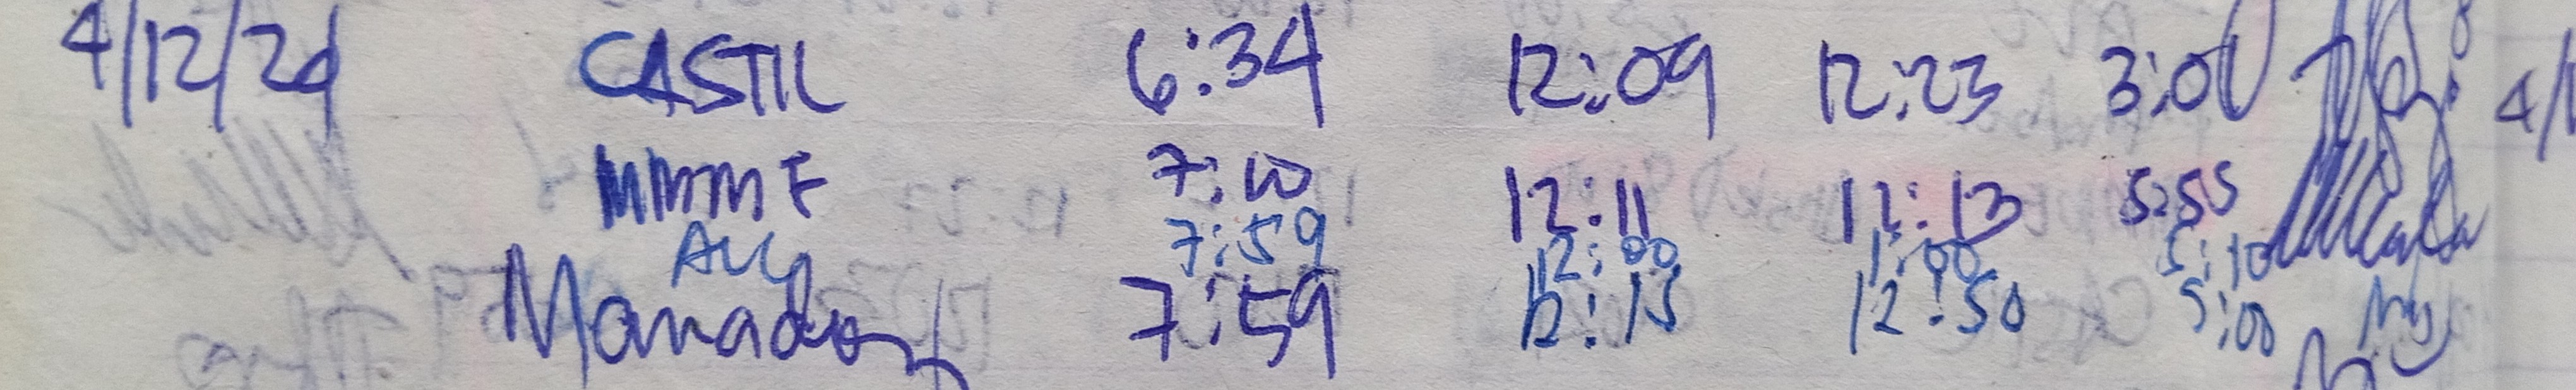 4/12/24 CASTIL 6:34 12:09 12:23 3:01
MMMF 7:10 12:11 12:13 5:55
ALY 7:59 12:00 1:00 5:10
7:59 12:15 12:50 5:00